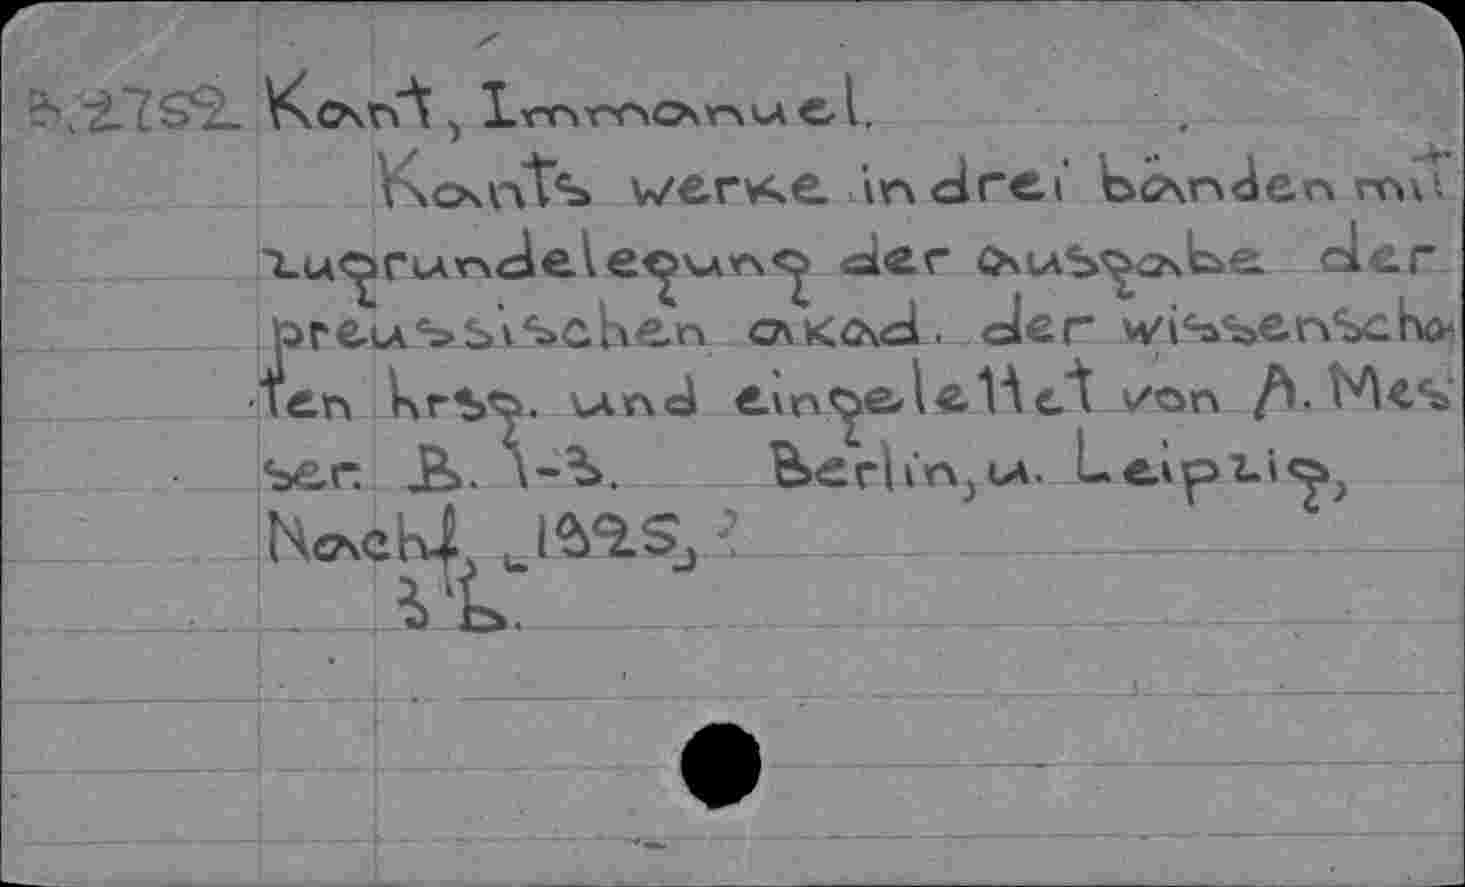 B.2752. Kant, Immanuel.
Kants werke in drei bänden mit
zugrundelegung der ausgabe der
preussischen akad. der wissenschaf
ten hrsg. und eingeleitet von A. Mes
ser. B. 1-3. Berlin, u. Leipzig,
Nachf, [1925,?
3 b.